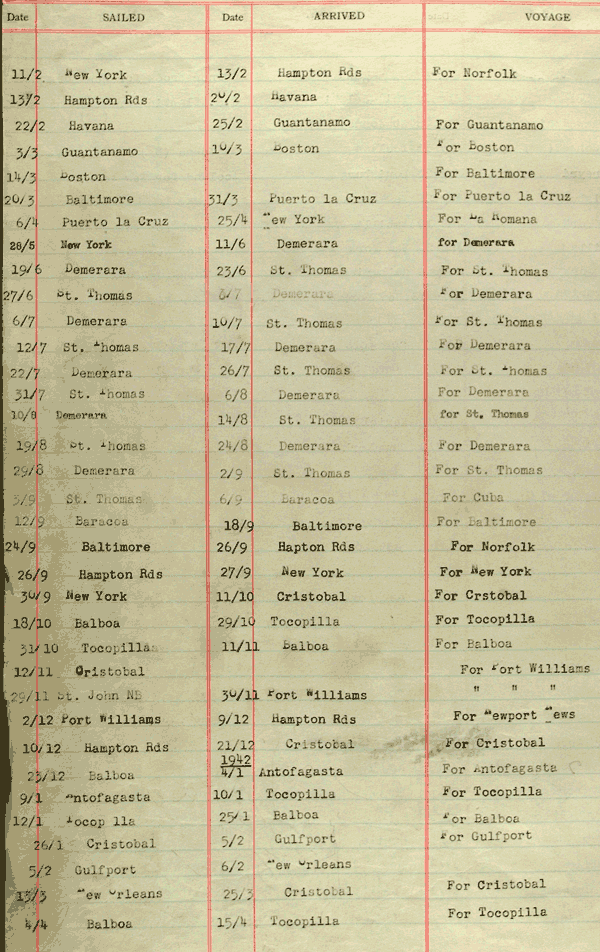 Date SAILED Date ARRIVED VOYAGE
11/2 New York 13/2 Hampton Rds For Norfolk
13/2 Hampton Rds 20/2 Havana
22/2 Havana 25/2 Guantanamo For Guantanamo
3/3 Guantanamo 10/3 Boston For Boston
14/3 Boston For Baltimore
20/3 Baltimore 31/3 Puerto la Cruz For Puerto la Cruz
6/4 Puerto la Cruz 25/4 New York For La Romana
28/5 New York 11/6 Demerara for Demerara
19/6 Demerara 23/6 St. Thomas For St. Thomas
27/6 St. Thomas 3/7 Demerara For Demerara
6/7 Demerara 10/7 St. Thomas For St. Thomas
12/7 St. Thomas 17/7 Demerara For Demerara
22/7 Demerara 26/7 St. Thomas For St. Thomas
31/7 St. Thomas 6/8 Demerara For Demerara
10/8 Demerara 14/8 St. Thomas for St. Thomas
19/8 St. Thomas 24/8 Demerara For Demerara
29/8 Demerara 2/9 St. Thomas For St. Thomas
3/9 St. Thomas 6/9 Baracoa For Cuba
12/9 Baracoa 18/9 Baltimore For Baltimore
24/9 Baltimore 26/9 Hapton Rds For Norfolk
26/9 Hampton Rds 27/9 New York For New York
30/9 New York 11/10 Cristobal For Crstobal
18/10 Balboa 29/10 Tocopilla For Tocopilla
31/10 Tocopillas 11/11 Balboa For Balboa
12/11 Cristobal For Port Williams
29/11 St. John NB 30/11 Port Williams " " "
2/12 Port Williams 9/12 Hampton Rds For Newport News
10/12 Hampton Rds 21/12 Cristobal For Cristobal
1942
23/12 Balboa 4/1 Antofagasta For Antofagasta
9/1 Antofagasta 10/1 Tocopilla For Tocopilla
12/1 Tocop lla 25/1 Balboa For Balboa
26/1 Cristobal 5/2 Gulfport For Gulfport
5/2 Gulfport 6/2 New Orleans
13/3 New Orleans 25/3 Cristobal For Cristobal
4/4 Balboa 15/4 Tocopilla For Tocopilla